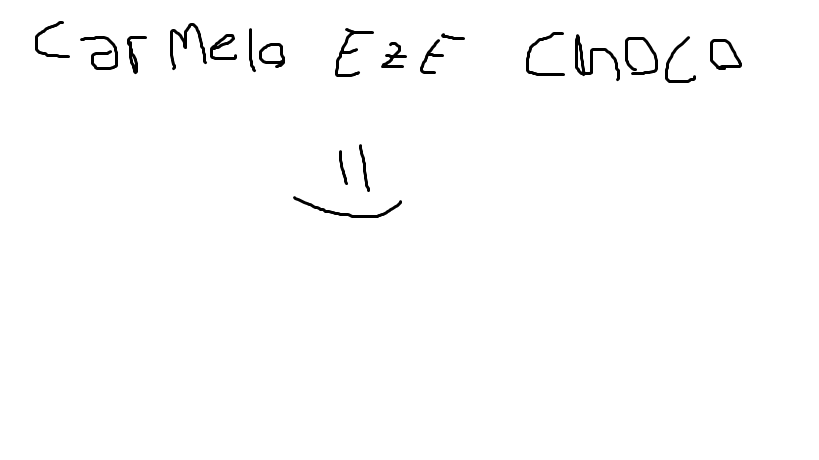 Carmelo EzE Choco